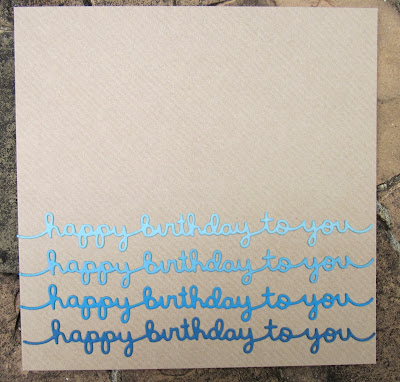 happy birthday to you
happy birthday to you
happy birthday to you
happy birthday to you